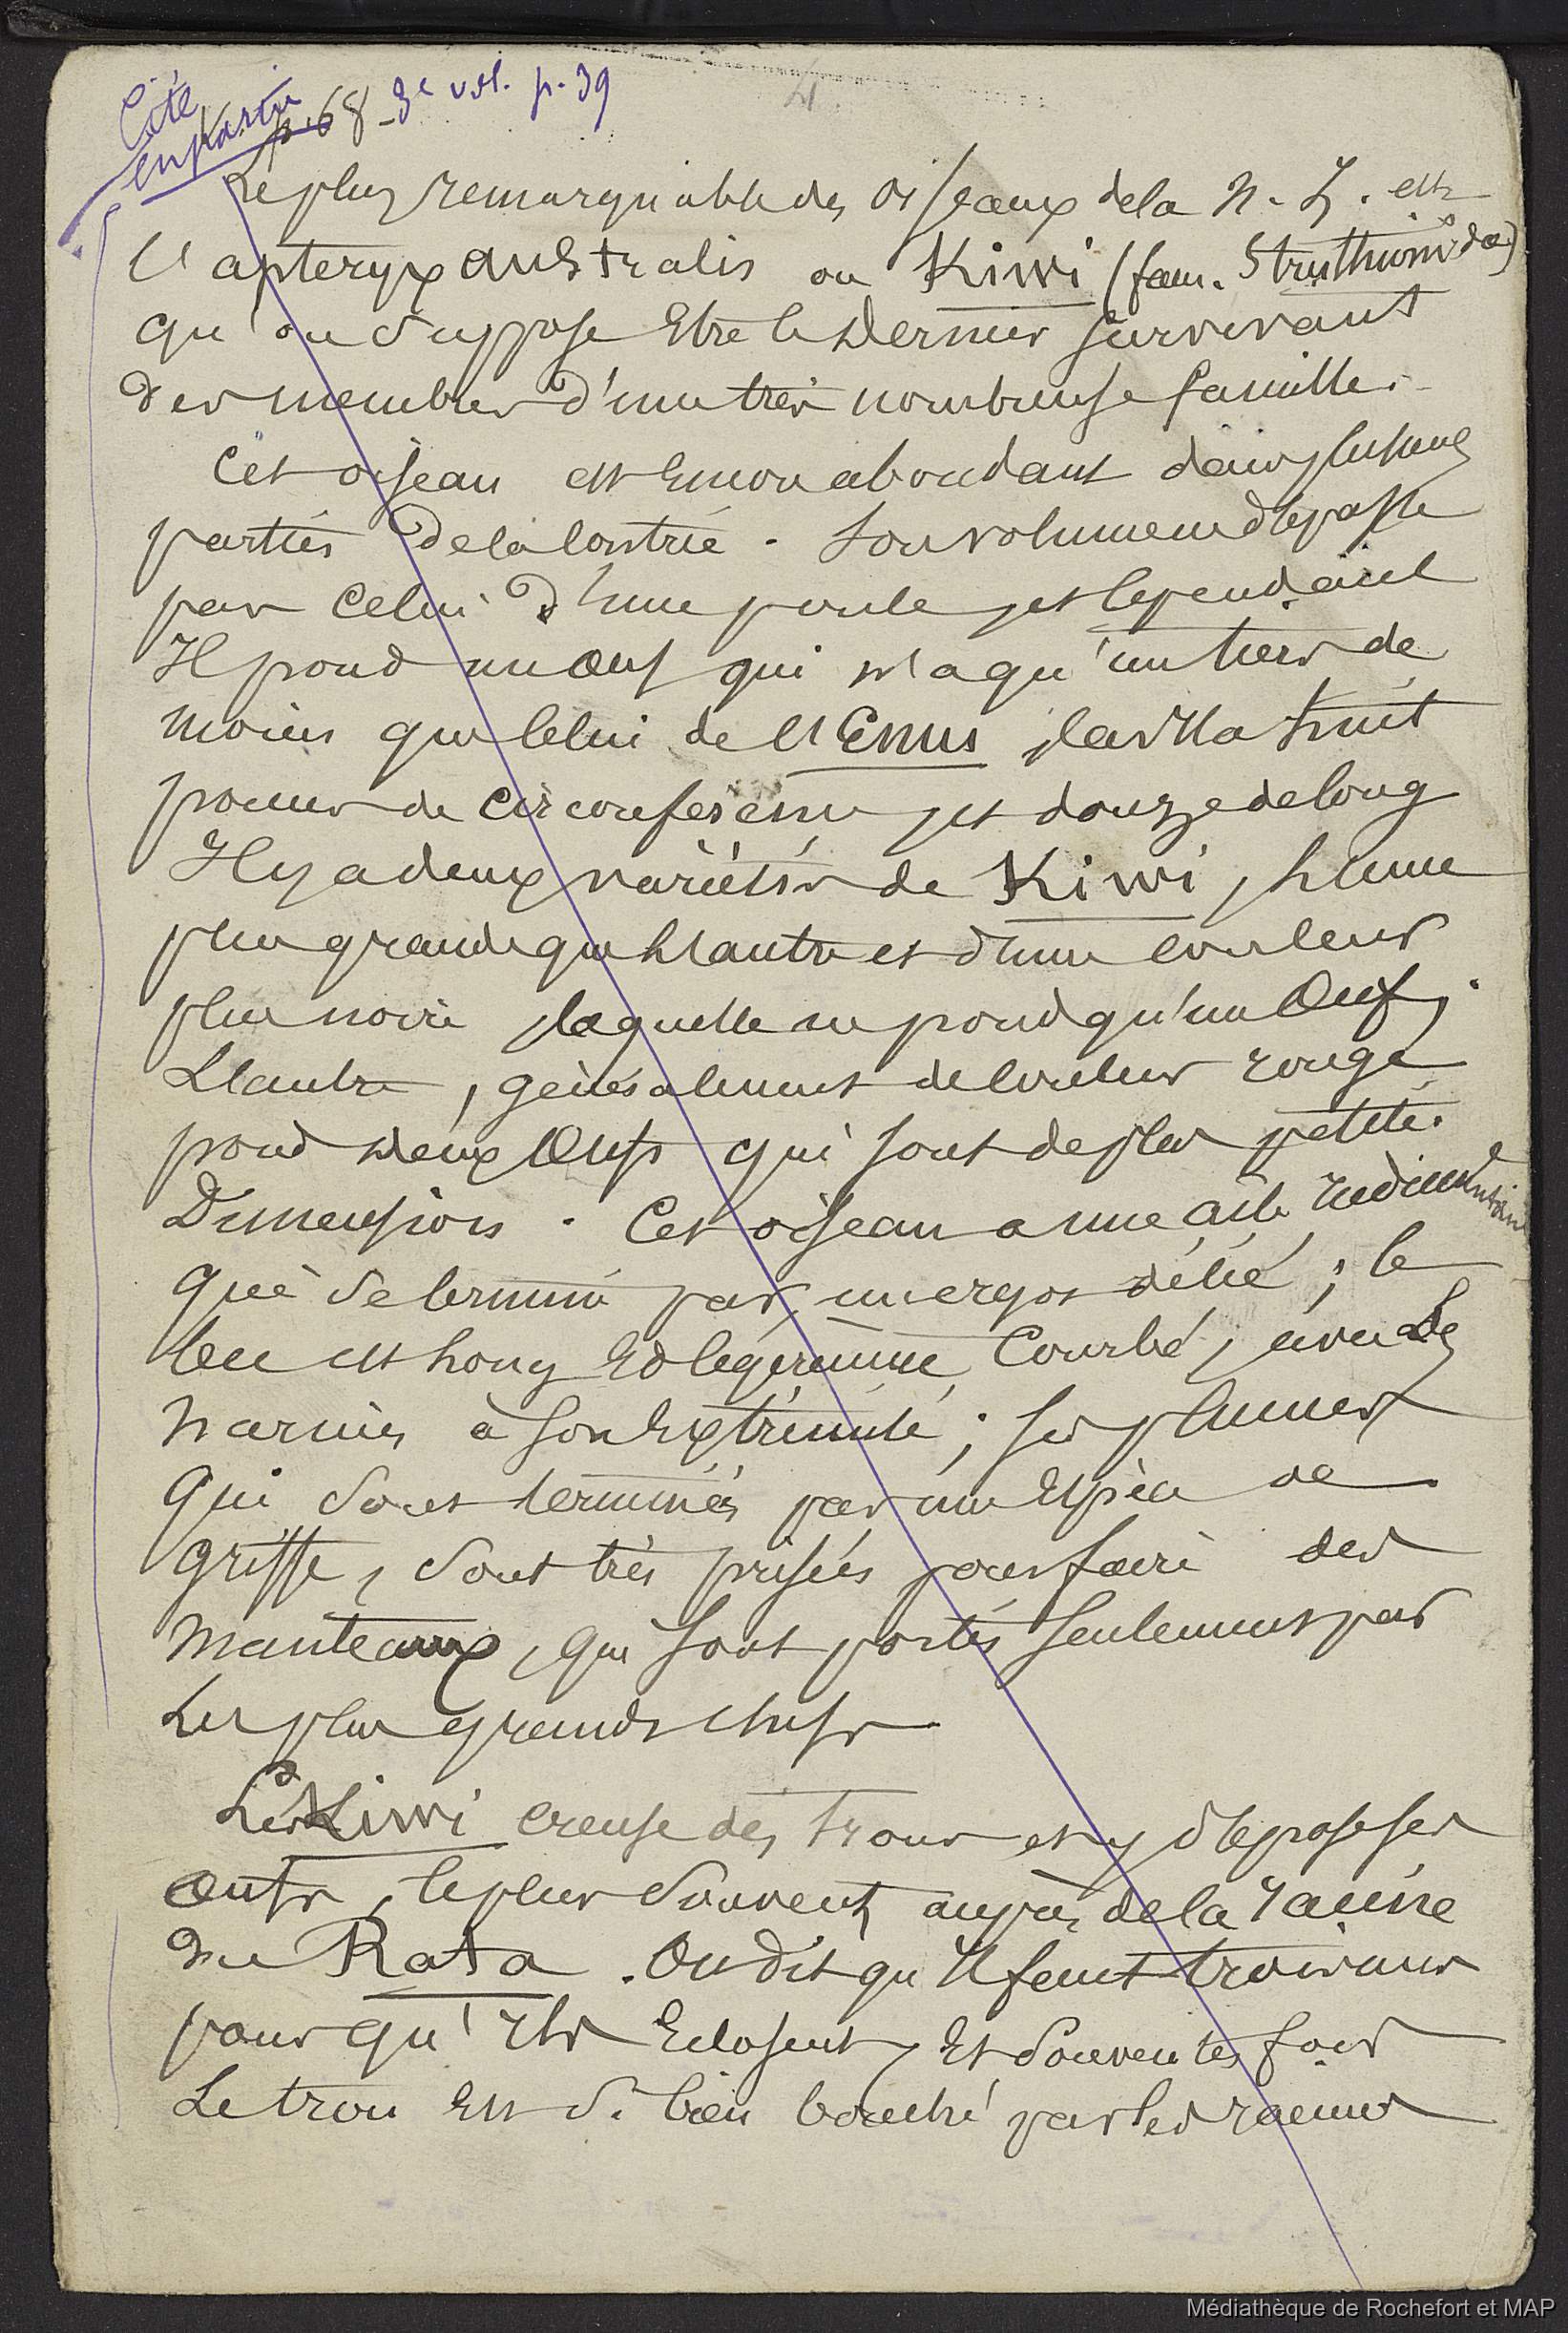 4.
Cité
en partie
p. 68 - 3e vol. p. 39
Le plus remarquable des oiseaux de la N. Z. est
l'apteryx australis ou Kiwi (fam. Struthionidae)
qu'on suppose être le dernier survivant
des membres d'une très nombreuse famille.
Cet oiseau est encore abondant dans plusieurs
parties de la contrée. Son volume ne dépasse
pas celui d'une poule, et cependant
Il pond un œuf qui n'a qu'un tiers de
moins que celui de l'Emus, car il a huit
pouces de circonférence et douze de long
Il y a deux variétés de Kiwi, l'une
plus grande que l'autre et d'une couleur
plus noire, laquelle ne pond qu'un Œuf;
L'autre, généralement de couleur rouge
pond deux Œufs qui sont de plus petite
Dimension. Cet oiseau a une aile rudimentaire
que se termine par un ergot délié; le
bec est long et légèrement Courbé, avec des
narines à son extrémité; ses plumes
qui sont terminées par une espèce de
griffe, sont très prisées pour faire des
manteaux, qui sont portés seulement par
Les plus grands chefs
Le Kiwi creuse des trous et y dépose ses
œufs, le plus souvent auprès de la racine
du Rata. On dit qu'il faut trois ans
pour qu'ils éclosent, et souventes fois
Le trou est si bien bouché par les racines
Médiathèque de Rochefort et MAP